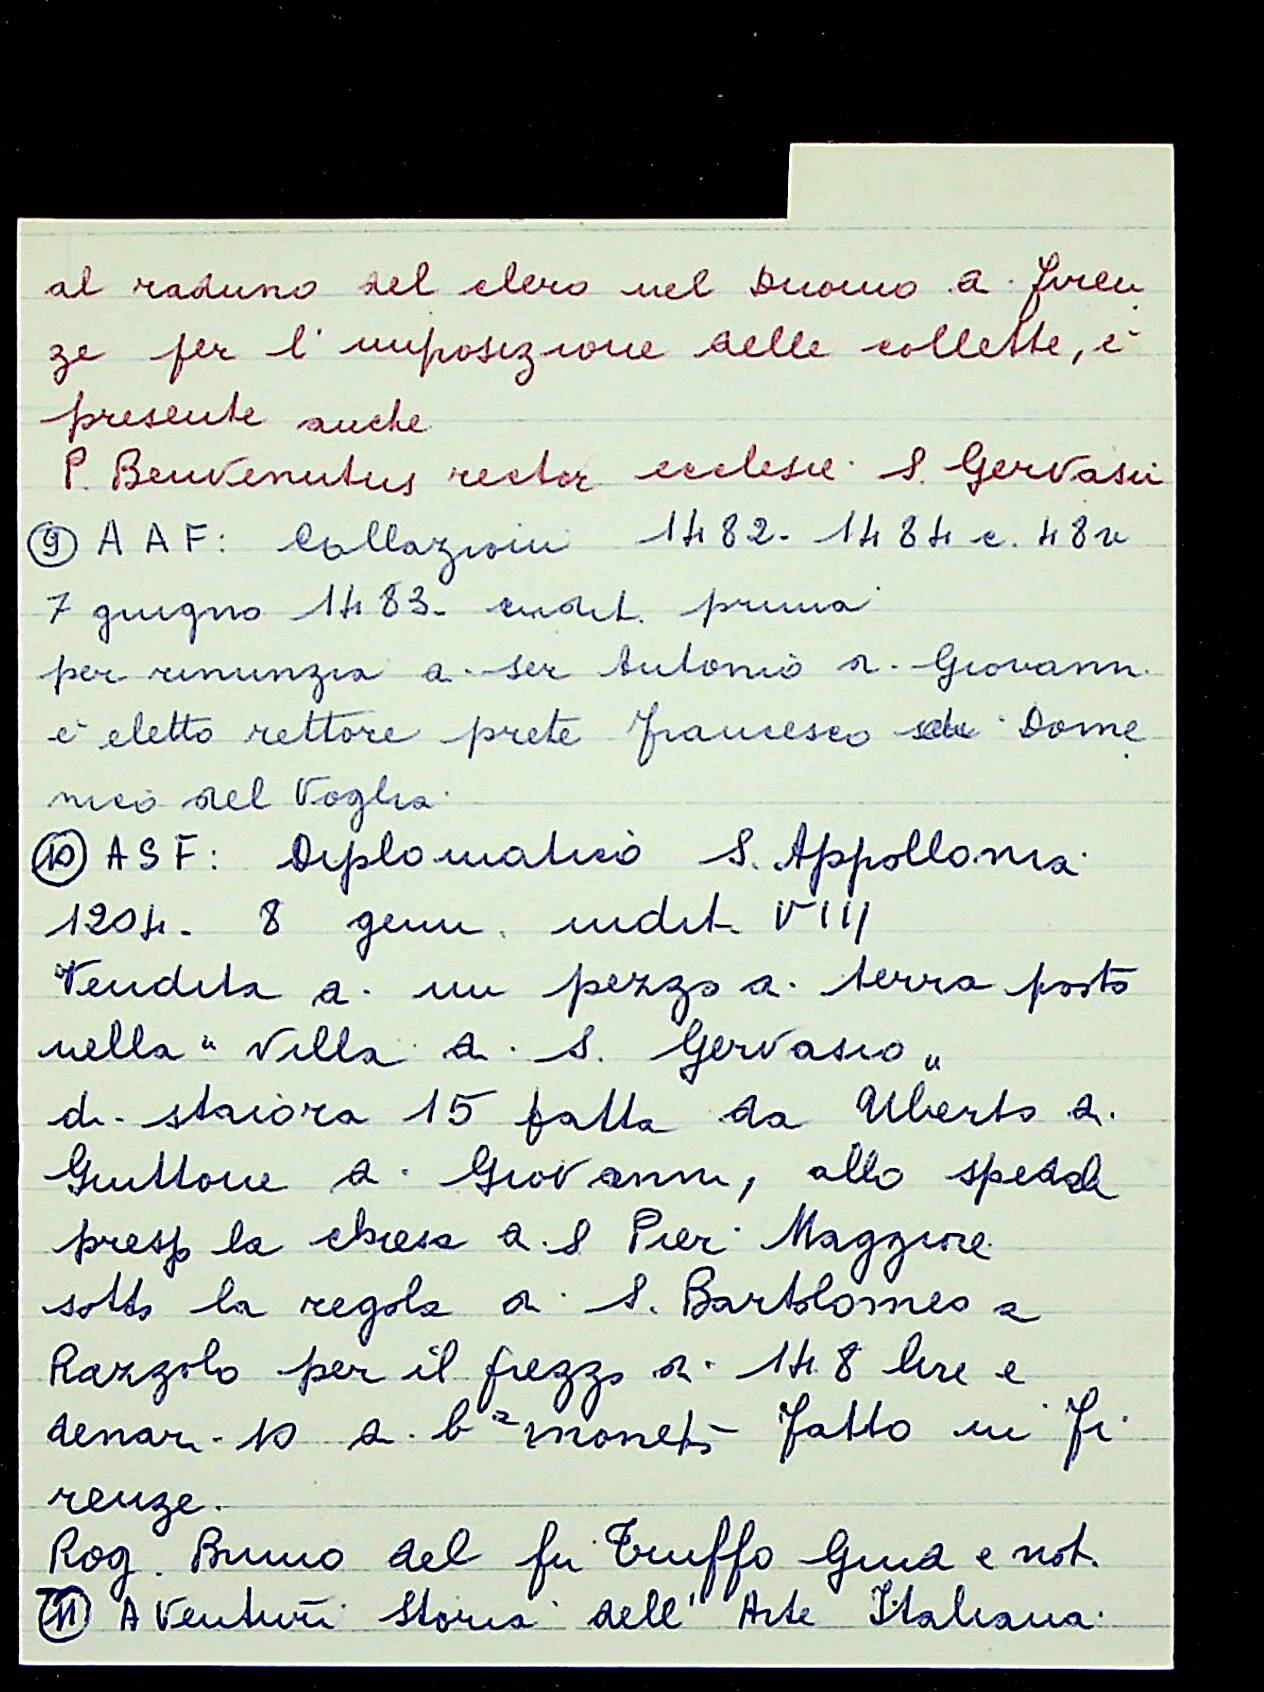 al raduno del clero nel Duomo di Firen
ze per l'imposizione delle collette, è
presente anche
P. Benvenutus rector ecclesie S. Gervasii
⑨ A A F: Collazioni 1482-1484 c. 48v
7 giugno 1483- indit. prima
per rinunzia di ser Antonio di Giovanni
è eletto rettore prete Francesco di Dome
nico del Voglia
⑩ A S F: Diplomatico S. Appollonia
1204- 8 genn. indit. VIII
Vendita di un pezzo di terra posto
nella "Villa di S. Gervasio"
di staiora 15 fatta da Uberto di
Guittone di Giovanni, allo spedale
presso la chiesa di S Pier Maggiore
sotto la regola di S. Bartolomeo a
Razzolo per il prezzo di 148 lire e
denari 10 di b^a moneta fatto in Fi
renze.
Rog. Bruno del fu Truffo Giud e not.
⑪ A Venturi Storia dell'Arte Italiana